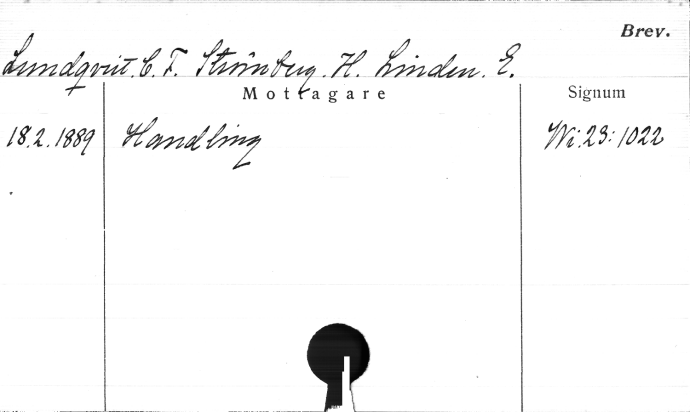 Brev.
Lundqvist. C. F. Strömberg. H. Linden. E.
Mottagare Signum
18.2.1889 Handling Wi.23:1022